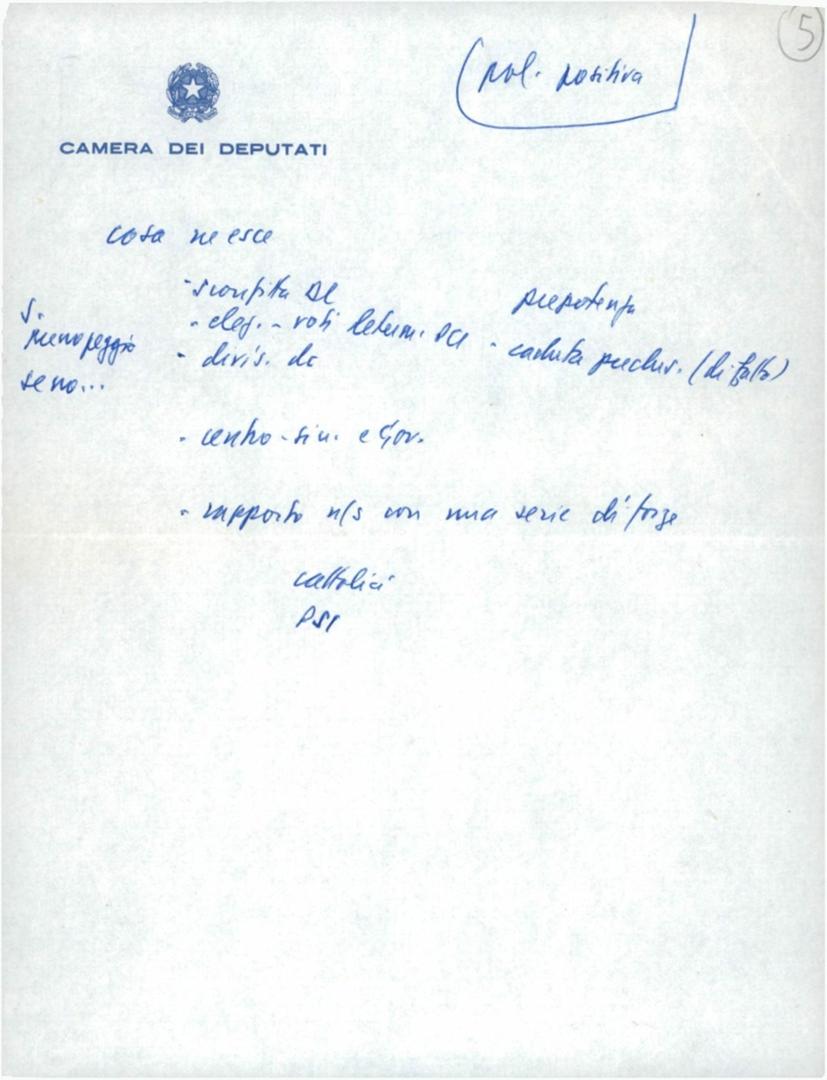 5
pol. positiva
CAMERA DEI DEPUTATI
cosa ne esce
- sconfitta DC
prepotenza
- eleg. - voti determ. PCI - caduta preclus. (di fatto)
- divis. dc
meno peggio
se no...
- centro-sin. e Gov.
- rapporto n/s con una serie di forze
cattolici
PSI